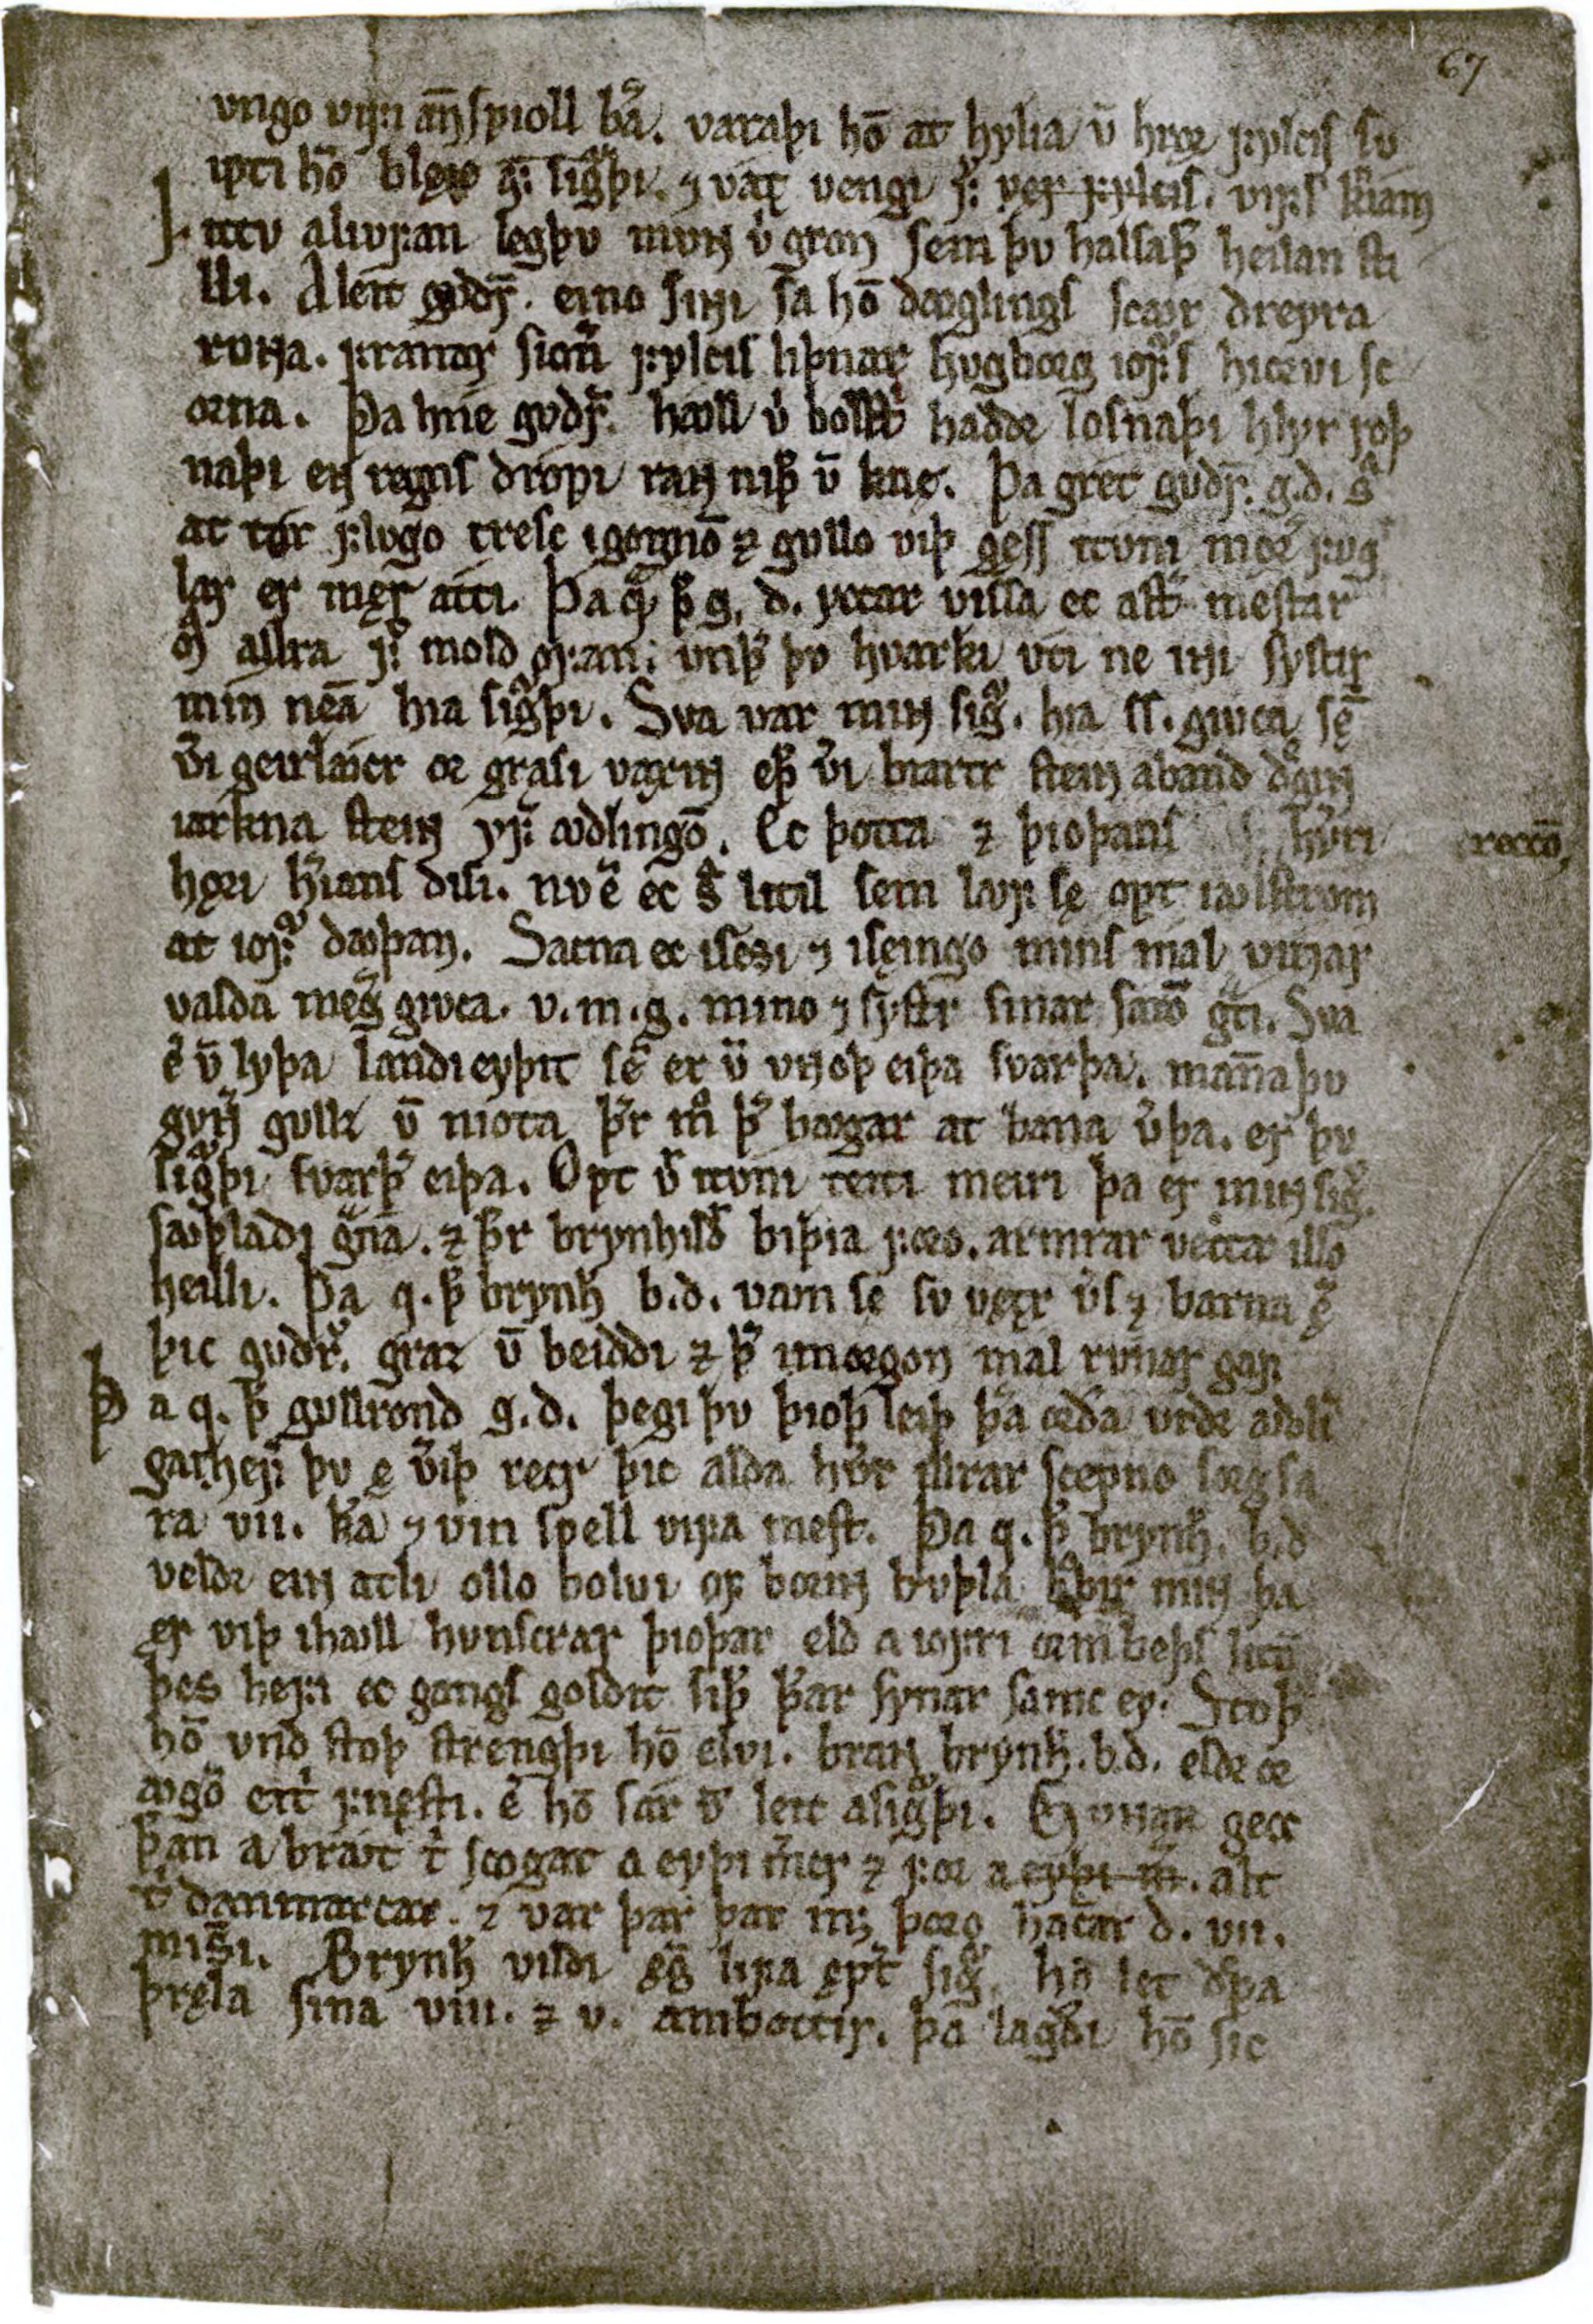 67
ungo vífi an̄spioll ba͛. varaþi hō at hylia ū hrꝍr fylcis sv
ipti hō blęio af sigͮþi. ⁊ vatt vengi fͥ vęf fylcis. vífs kniam
Littu a livfan legþv mvnn v̓ gron sem þv halsaþ͛ heilan sti
lli. A leit gvdrͮ. eino siɴi sa hō dꜹglings scꜹr dreyra
rvɴa. franar sionͥ fylcis liþnar hvgborg iofrͥs hiorvi sc
orna. Þa hne gvdrͮ. hꜹll v̓ bolstri haddr losnaþi hlyr roþ
naþi enn regns dropi rann niþr ū kne. Þa gret gvdrͮ. g.d. sͣ
at tár flvgo tresc igognō ⁊ gvllo viþ gęss ítvni męrͥ fvg
lar er męr átti. Þa qͣ þ͛ g. d. yccar vissa ec astͥ mestar
m̄ allra fͥ mold ofan; vnþ͛ þv hvarki vti ne iɴi systir
min nēa hia sigͮþi. Sva var minn sigͮ. hia ss. givca sē
v͛i geirlꜹcr or grasi vaxinn eþ͛ v͛i biartr steinn aband dͤginn
iarkna steinn yfͥ ꜹdlingō. Ec þotta ⁊ þioþans hv͛ri
reccō,
hęri h͛ians disi. nv ē ec sͣ litil sem lꜹf sę opt iꜹlstrom
at iofͥ dꜹþan. Sacna ec isessi ⁊ isęingo mins mal vinar
valda megͥ givca. v. m. g. mino ⁊ systr sinar sarō gͣti. Sva
ē͛ ū lyþa landi eyþit sē er ū vnnoþ eiþa svarþa. manna þv
gvnͥ gvlli ū niota þ͛r mͦ þ͛ bꜹgar at bana v͛þa. er þv
sigͮþi svarþ͛ eiþa. Opt v͛ itvni teiti meiri þa er minn sigͮ.
sꜹþladi gͣna. ⁊ þ͛r brynhildͥ biþia foro. armrar vęttar illo
heilli. Þa q. þ͛ brynh̄ b.d. vꜹn se sv vętr v͛s ⁊ barna ē͛
þic gvdrͮ. gráz ū beiddi ⁊ þ͛ imorgon mal rvnar gaf.
Þa q. þ͛ gvllrond g. d. þegi þv þioþleiþ þͣa orda vrdr ꜹdlī
gaþ hefͥ þv ę v͛iþ recr þic alda hv͛r illrar scepno sorg sa
ra vii. ka ⁊ vin spell vífa mest. Þa q. þ͛ brynh̄. b.d
veldr einn atli ollo bolvi of borinn bvþla bͦþir minn þa
er viþ ihꜹll hvnscrar þioþar eld a iofri ormbeþs litō
þes hefi ec gangs goldit siþ͛ þ͛ar synar sámc ey. Stoþ
hō vnd stoþ strengþi hō elvi. brann brynh̄. b.d. eldr or
ꜹgō eitͥ fnęsti. ē͛ hō sár ū leit asigͮþi. Gvdrvn gecc
þ͛an a braut tͥ scogar a eyþim͛cr ⁊ for a eyþi m͛. alt
tͥ danmarcar. ⁊ var þar þar m; þoro hác͛ar d. vii.
mis͛i. Brynh̄ vildi eͥgͥ lifa eptͥ sigͮ. hō let dͬpa
þręla sína viii. ⁊ v. ambottir. þa lagdi hō sic